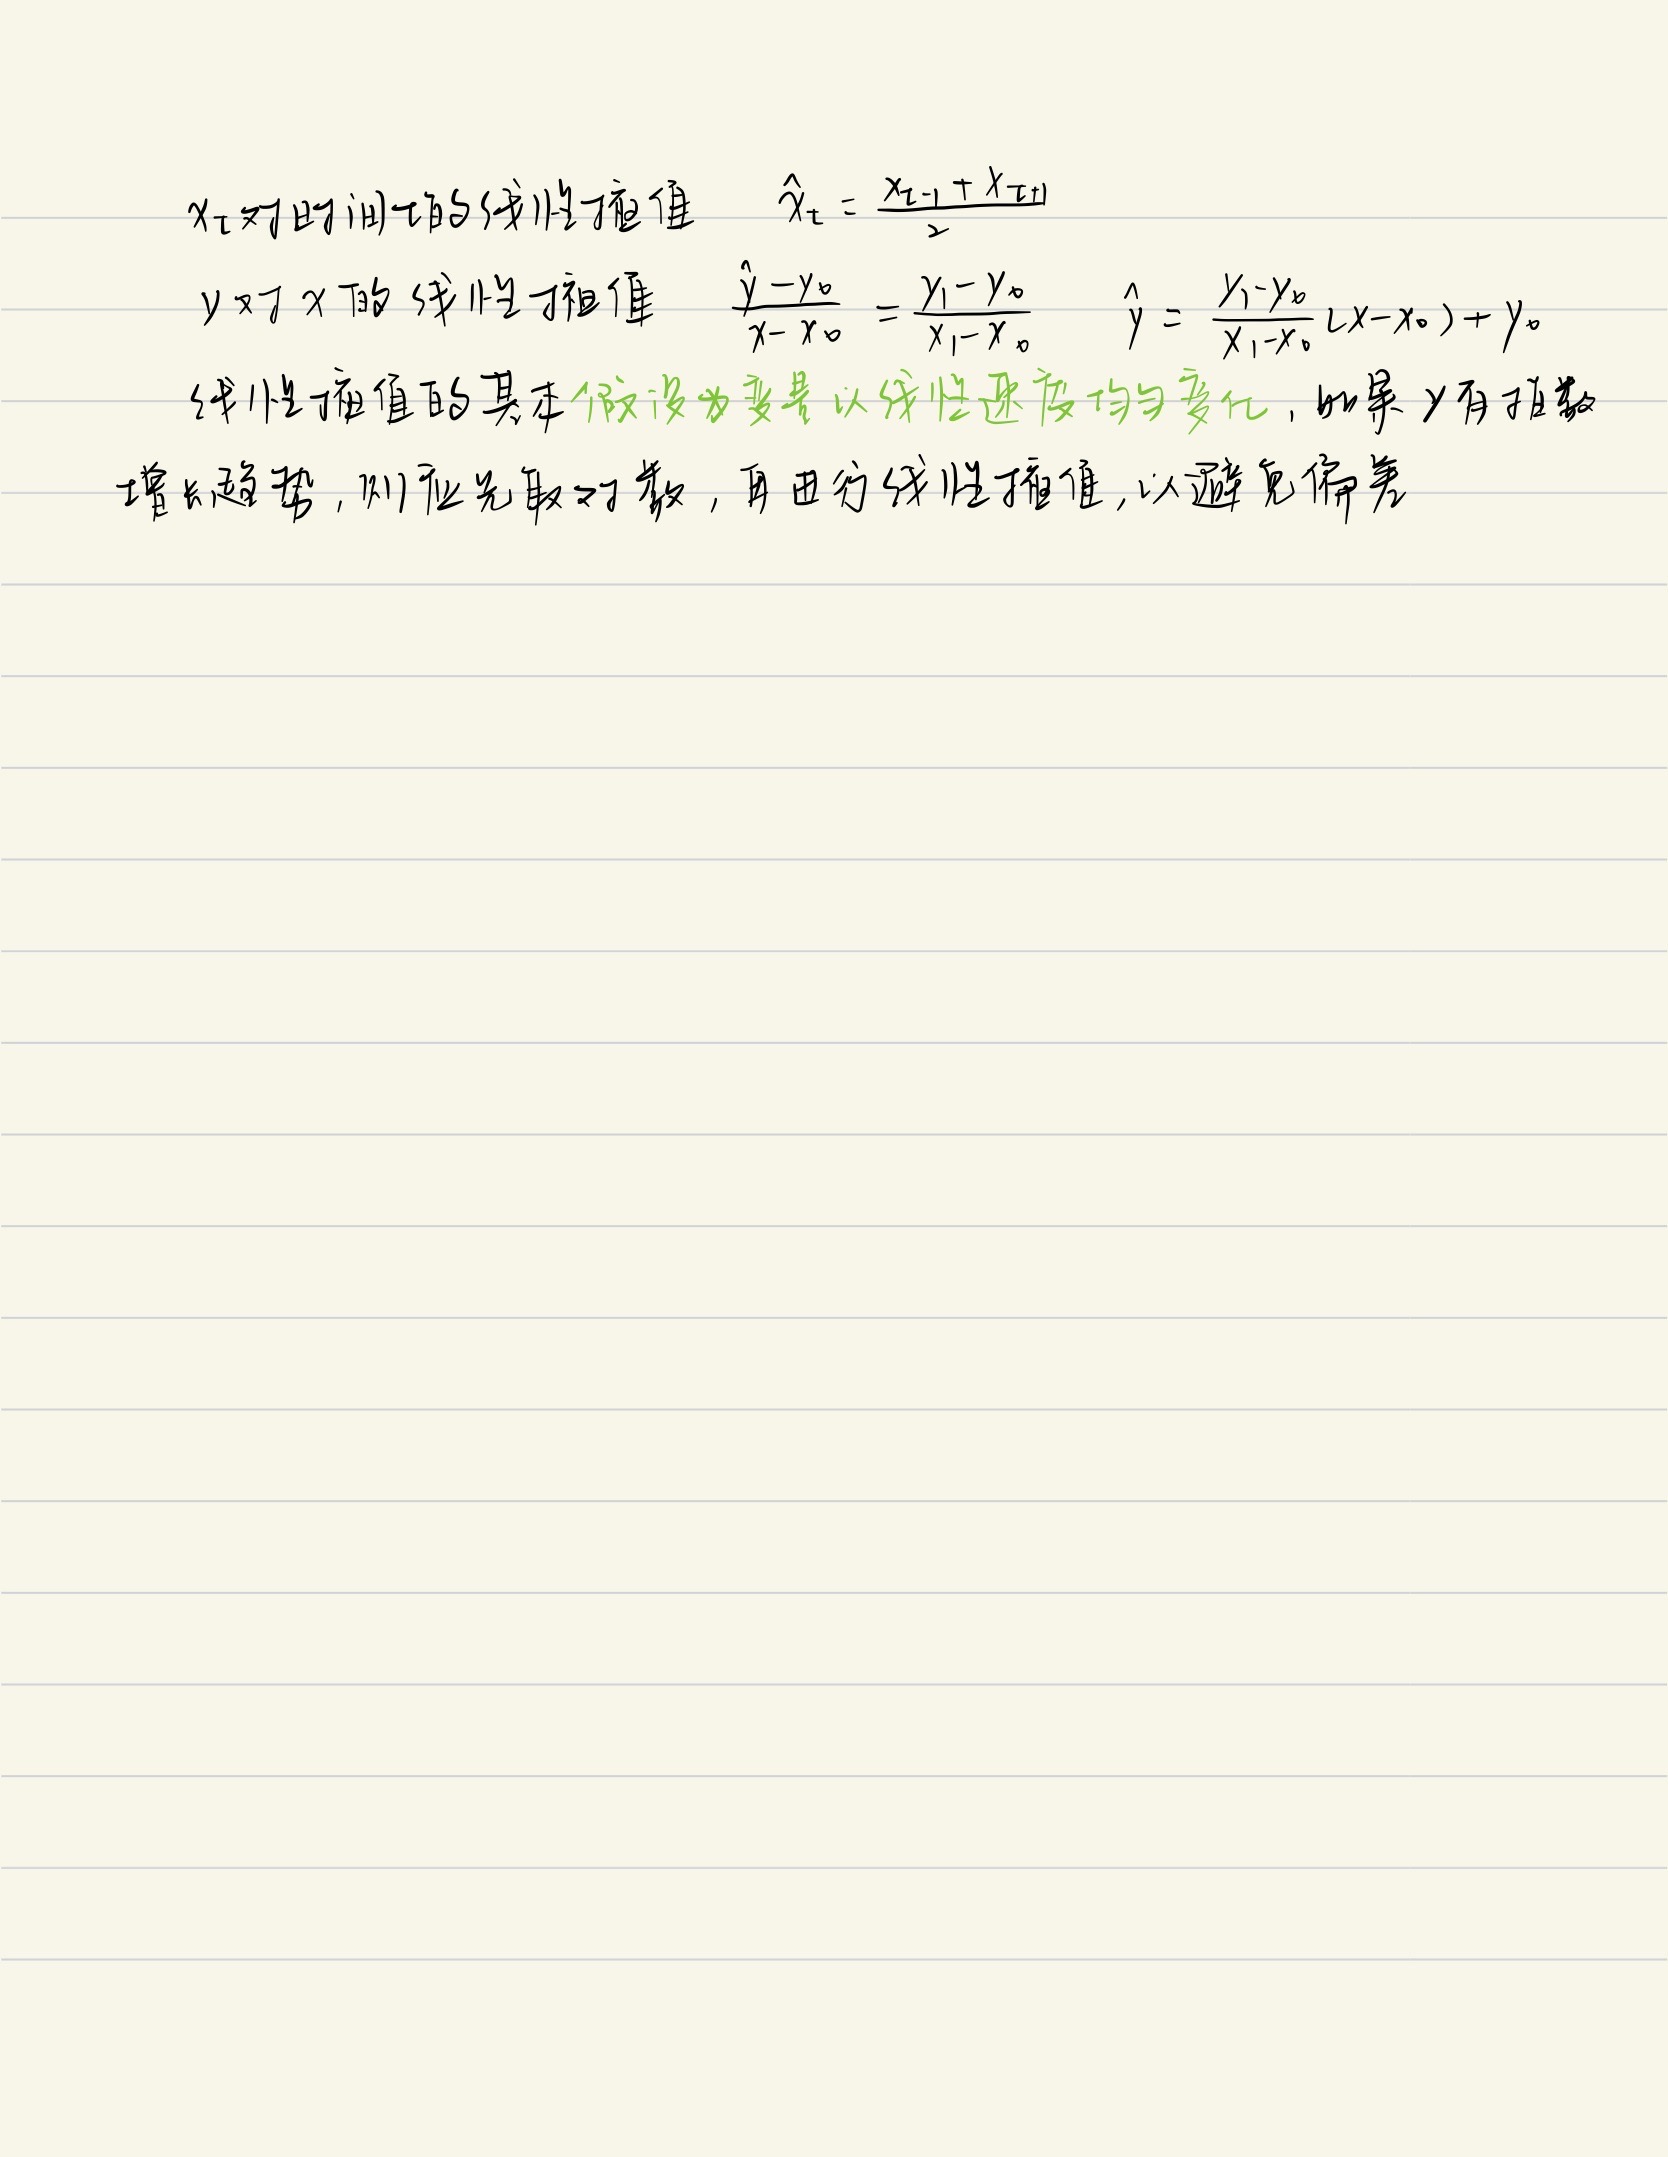 x_t对时间t的线性插值 x̂_t = (x_{t-1} + x_{t+1})/2
y对x的线性插值 (ŷ-y_0)/(x-x_0) = (y_1-y_0)/(x_1-x_0) ŷ = (y_1-y_0)/(x_1-x_0) (x-x_0)+y_0
线性插值的基本假设为变量以线性速度均匀变化,如果y有指数
增长趋势,则应先取对数,再进行线性插值,以避免偏差